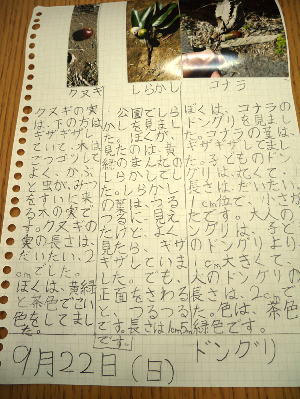 クヌギ
クヌギの実
は、下の方は
ギザギザし
ていて、木は
ゴツゴツして
よく、かぶ
と虫が、みつ
をすいに来
る木の実で
す。クヌギの
実の長さは、
だいたい、2
cmでした。
ぼくは、黄緑
と茶色でこい
色をしてまし
た。
しらかし
公園でしら
かしを見まし
た。ぼくが、
見たのは、黄
緑のまん丸の
しらかしでし
た。しらかし
の葉は、つる
つるに見え
たけど、よく
見たら、ギザ
ギザしていま
した。でも、
正面をさわる
と、つるつる
です。長さは1cm5mm
です。
コナラ
ぼくは、コナラの
ドングリを見まし
た。コナラの葉は、
ギザギザしてまし
た。子どものドン
グリは、丸くて、
長さは、だいたい、
1cm位で、小さな
たです。大人の
ドングリは、子ど
ものドングリより、
1cm大きくて、大
人のドングリの
長さは、2cmで
す。色は、茶色、
緑色です。
9月22日(日)
ドングリ